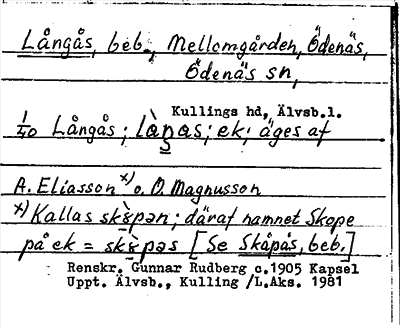 Långås, beb., Mellomgården, Ödenäs,
Ödenäs sn,
Kullings hd, Älvsb.l.
1/40 Långås; ek; äges af
A. Eliasson x) o. O. Magnusson
x) Kallas ; däraf namnet Skope
på ek = [Se Skåpås, beb.]
Renskr. Gunnar Rudberg c.1905 Kapsel
Uppt. Älvsb., Kulling /L.Aks. 1981